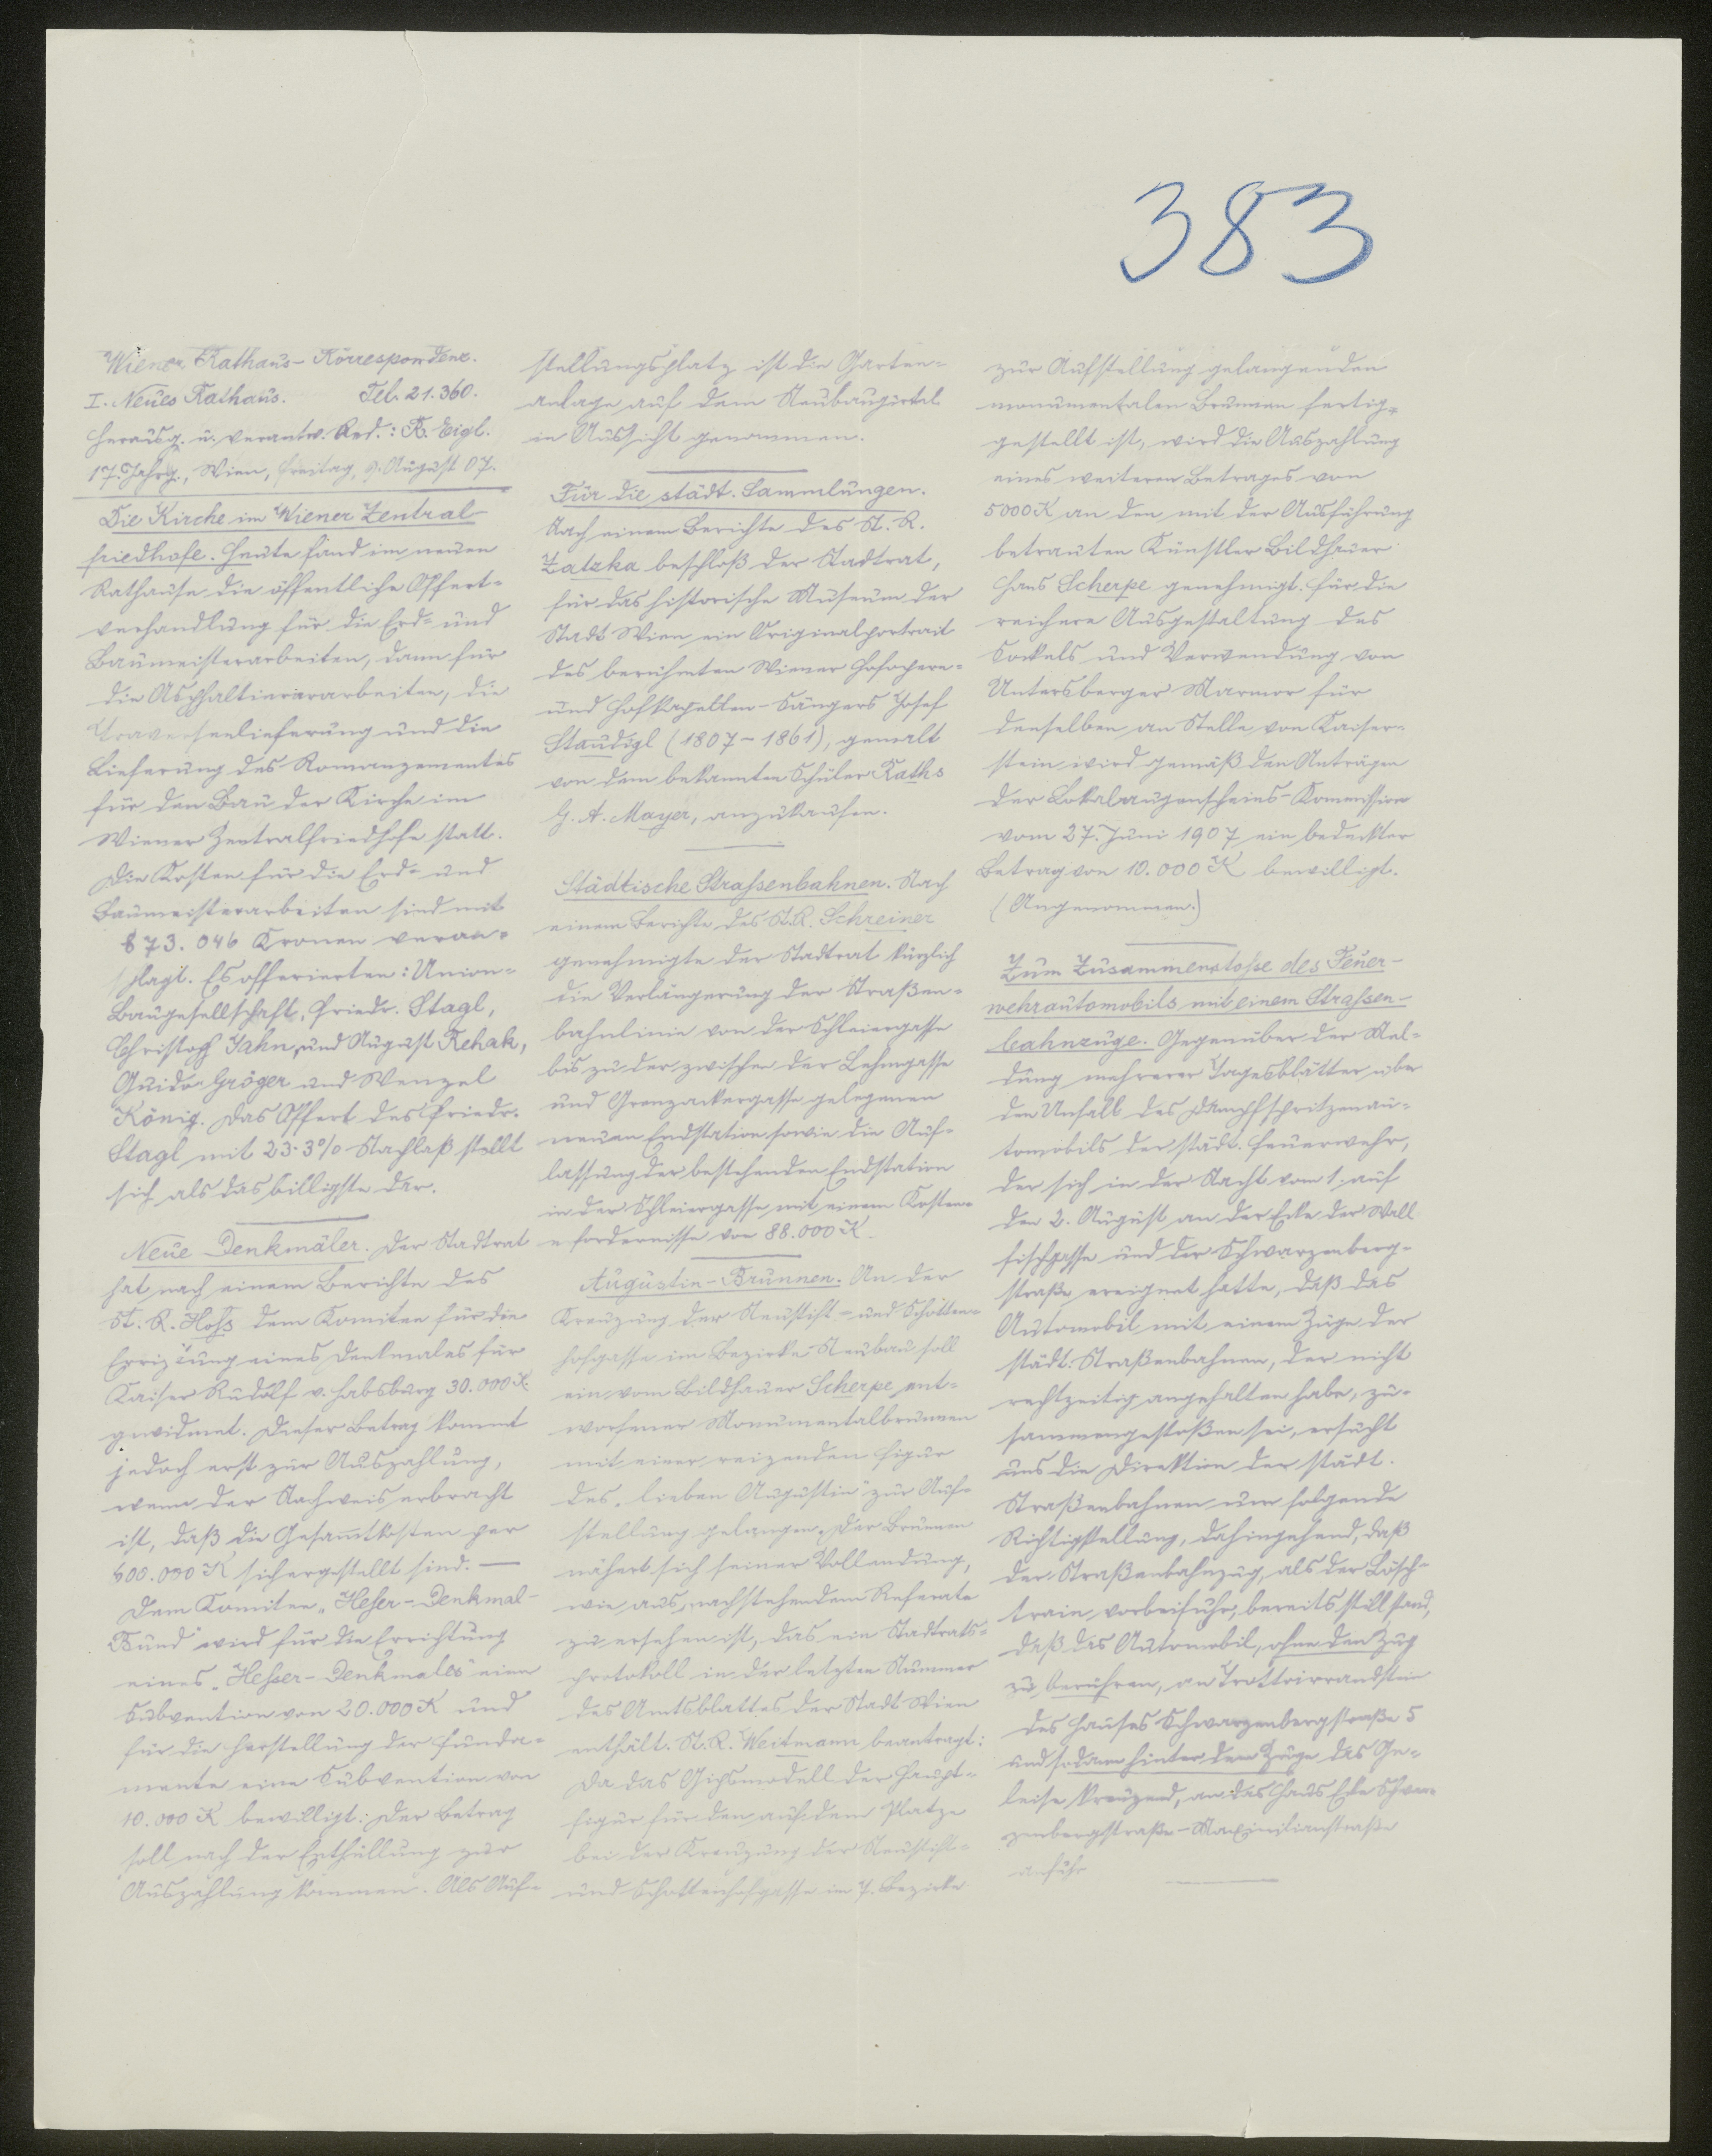 383
Wiener Rathaus-Korrespondenz.
I. Neues Rathaus. Tel. 21.360.
Herausg. u. verantw. Red.: R. Eigl.
17. Jahrg., Wien, Freitag, 9. August 07.
Die Kirche im Wiener Zentral-
friedhofe. Heute fand im neuen
Rathause die öffentliche Offert-
verhandlung für die Erd- und
Baumeisterarbeiten, dann für
die Asphaltiererarbeiten, die
Traversenlieferung und die
Lieferung des Romanzementes
für den Bau der Kirche im
Wiener Zentralfriedhofe statt.
Die Kosten für die Erd- und
Baumeisterarbeiten sind mit
873.046 Kronen veran-
schlagt. Es offerierten: Union-
Baugesellschaft, Friedr. Stagl,
Christoph Jahn und August Rehak,
Guido Gröger und Wenzel
König. Das Offert des Friedr.
Stagl mit 23·3% Nachlaß stellt
sich als das billigste dar.
Neue Denkmäler. Der Stadtrat
hat nach einem Berichte des
St. R. Hoß dem Komitee für die
Errichtung eines Denkmales für
Kaiser Rudolf v. Habsburg 30.000 K
gewidmet. Dieser Betrag kommt
jedoch erst zur Auszahlung,
wenn der Nachweis erbracht
ist, daß die Gesamtkosten per
600.000 K sichergestellt sind. —
Dem Komitee „Heßer-Denkmal-
Bund" wird für die Errichtung
eines „Hesser-Denkmales" eine
Subvention von 20.000 K und
für die Herstellung der Funda-
mente eine Subvention von
10.000 K bewilligt. Der Betrag
soll nach der Enthüllung zur
Auszahlung kommen. Als Auf-
stellungsplatz ist die Garten-
anlage auf dem Neubaugürtel
in Aussicht genommen.
Für die städt. Sammlungen.
Nach einem Berichte des St. R.
Zatzka beschloß der Stadtrat,
für das historische Museum der
Stadt Wien ein Originalportrait
des berühmten Wiener Hofopern-
und Hofkapellen-Sängers Josef
Staudigl (1807-1861), gemalt
von dem bekannten Schüler Raths
G. A. Mayer, anzukaufen.
Städtische Straßenbahnen. Nach
einem Berichte des St. R. Schreiner
genehmigte der Stadtrat kürzlich
die Verlängerung der Straßen-
bahnlinie von der Schleiergasse
bis zu der zwischen der Lehmgasse
und Grenzackergasse gelegenen
neuen Endstation sowie die Auf-
lassung der bestehenden Endstation
in der Schleiergasse mit einem Kosten-
erfordernisse von 88.000 K.
Augustin-Brunnen. An der
Kreuzung der Neustift- und Schotten-
hofgasse im Bezirke Neubau soll
ein vom Bildhauer Scherpe ent-
worfener Monumentalbrunnen
mit einer reizenden Figur
des „lieben Augustin" zur Auf-
stellung gelangen. Der Brunnen
nähert sich seiner Vollendung,
wie aus nachstehendem Referate
zu ersehen ist, das ein Stadtrats-
protokoll in der letzten Nummer
des Amtsblattes der Stadt Wien
enthält. St. R. Weitmann beantragt:
Da das Gipsmodell der Haupt-
figur für den auf dem Platze
bei der Kreuzung der Neustift-
und Schottenhofgasse im 7. Bezirke
zur Aufstellung gelangenden
monumentalen Brunnen fertig-
gestellt ist, wird die Auszahlung
eines weiteren Betrages von
5000 K an den mit der Ausführung
betrauten Künstler Bildhauer
Hans Scherpe genehmigt. Für die
reichere Ausgestaltung des
Sockels und Verwendung von
Untersberger Marmor für
denselben an Stelle von Kaiser-
stein wird gemäß den Anträgen
der Lokalaugenscheins-Kommission
vom 27. Juni 1907 ein bedeckter
Betrag von 10.000 K bewilligt.
(Angenommen.)
Zum Zusammenstoße des Feuer-
wehrautomobils mit einem Straßen-
bahnzuge. Gegenüber der Mel-
dung mehrerer Tagesblätter über
den Unfall des Dampfspritzenau-
tomobils der städt. Feuerwehr,
der sich in der Nacht vom 1. auf
den 2. August an der Ecke der Wall
fischgasse und der Schwarzenberg-
straße ereignet hatte, daß das
Automobil mit einem Zuge der
städt. Straßenbahnen, der nicht
rechtzeitig angehalten habe, zu-
sammengestoßen sei, ersucht
uns die Direktion der städt.
Straßenbahnen um folgende
Richtigstellung, dahingehend, daß
der Straßenbahnzug, als der Lösch-
train vorbeifuhr, bereits still stand,
daß das Automobil, ohne den Zug
zu berühren, an Trottoirrandstein
des Hauses Schwarzenbergstraße 5
und sodann hinter dem Zuge das Ge-
leise kreuzend, an das Haus Ecke Schwar-
zenbergstraße-Maximilianstraße
anfuhr.